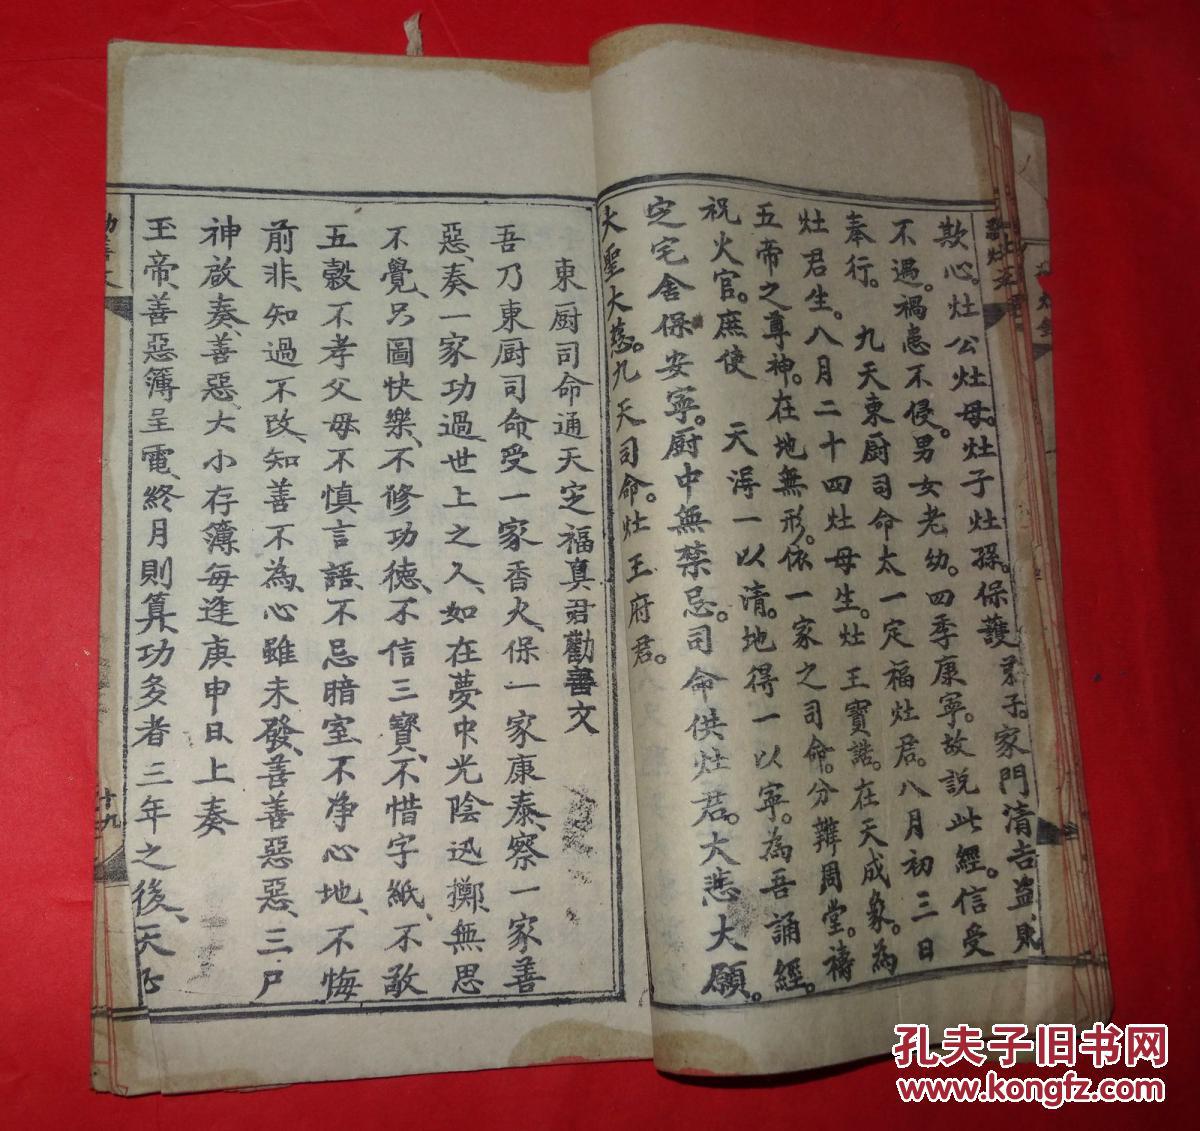 欺心。灶公灶母。灶子灶孫。保護君子。家門清吉盜賊
不遇。禍患不侵。男女老幼。四季康寧。故說此經。信受
奉行。 九天東厨司命太一定福灶君。八月初三日
灶君生。八月二十四灶母生。灶王寶誥。在天成象。為
五帝之尊神。在地無形。依一家之司命。分辦周堂。禱
祝火官。庶使 天淂一以清。地得一以寧。為吾誦經。
定宅舍保安寧。厨中無禁忌。司命供灶君。大悲大願。
大聖大慈。九天司命。灶王府君。
東厨司命通天定福真君勸善文
吾乃東厨司命、受一家香火、保一家康泰、察一家善
惡、奏一家功過、世上之人、如在夢中光陰迅擲、無思
不覺、只圖快樂、不修功德、不信三寶、不惜字紙、不敬
五穀不孝父母、不慎言語、不忌暗室、不净心地、不悔
前非、知過不改、知善不為、心雖未發、善善惡惡、三尸
神啟奏、善惡、大小存簿每逢庚申日上奏
玉帝、善惡簿呈電、終月則算、功多者三年之後、天
十九
孔夫子旧书网
www.kongfz.com